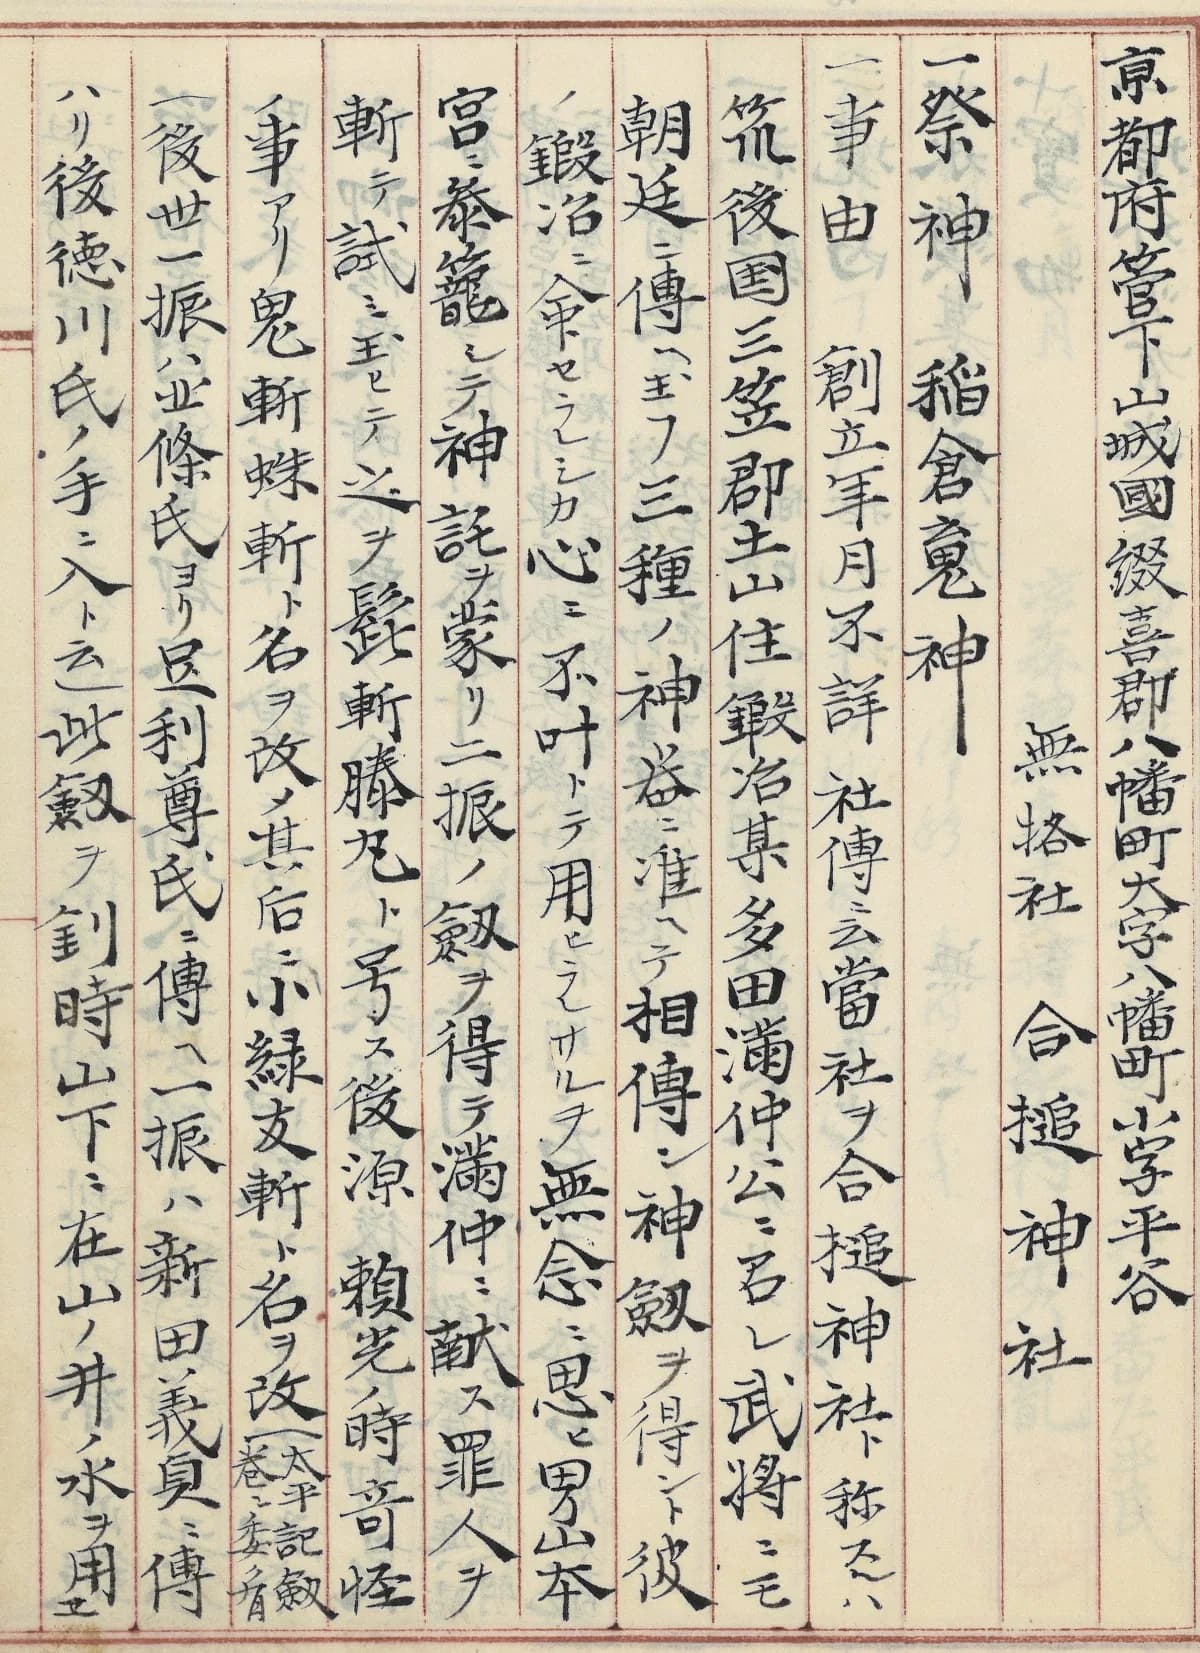 京都府管下山城國綴喜郡八幡町大字八幡町小字平谷
無格社　合槌神社
一祭神　稲倉䰟神
一事由　創立年月不詳　社傳ニ云當社ヲ合槌神社ト称スルハ
筑後国三笠郡土山住鍛冶某多田満仲公ニ召レ武将ニモ
朝廷ニ傳ヘ玉フ三種ノ神器ニ准ヘテ相傳ン神劔ヲ得ントト彼
ノ鍛冶ニ命セラレシカ心ニ不叶トテ用ヒラレサルヲ無念ニ思ヒ男山本
宮ニ参籠シテ神託ヲ蒙リ二振ノ劔ヲ得テ満仲ニ献ス罪人ヲ
斬テ試ミ玉ヒテ之ヲ髭斬膝丸ト号ス後源　頼光ノ時竒怪
ノ事アリ鬼斬蛛斬ト名ヲ改メ其后ニ小緑友斬ト名ヲ改（太平記劔巻ニ委シ有
一後世一振ハ北條氏ヨリ足利尊氏ニ傳ヘ一振ハ新田義貞ニ傳
ハリ後徳川氏ノ手ニ入ト云此劔ヲ釗時山下ニ在山ノ井ノ水ヲ用ヒ